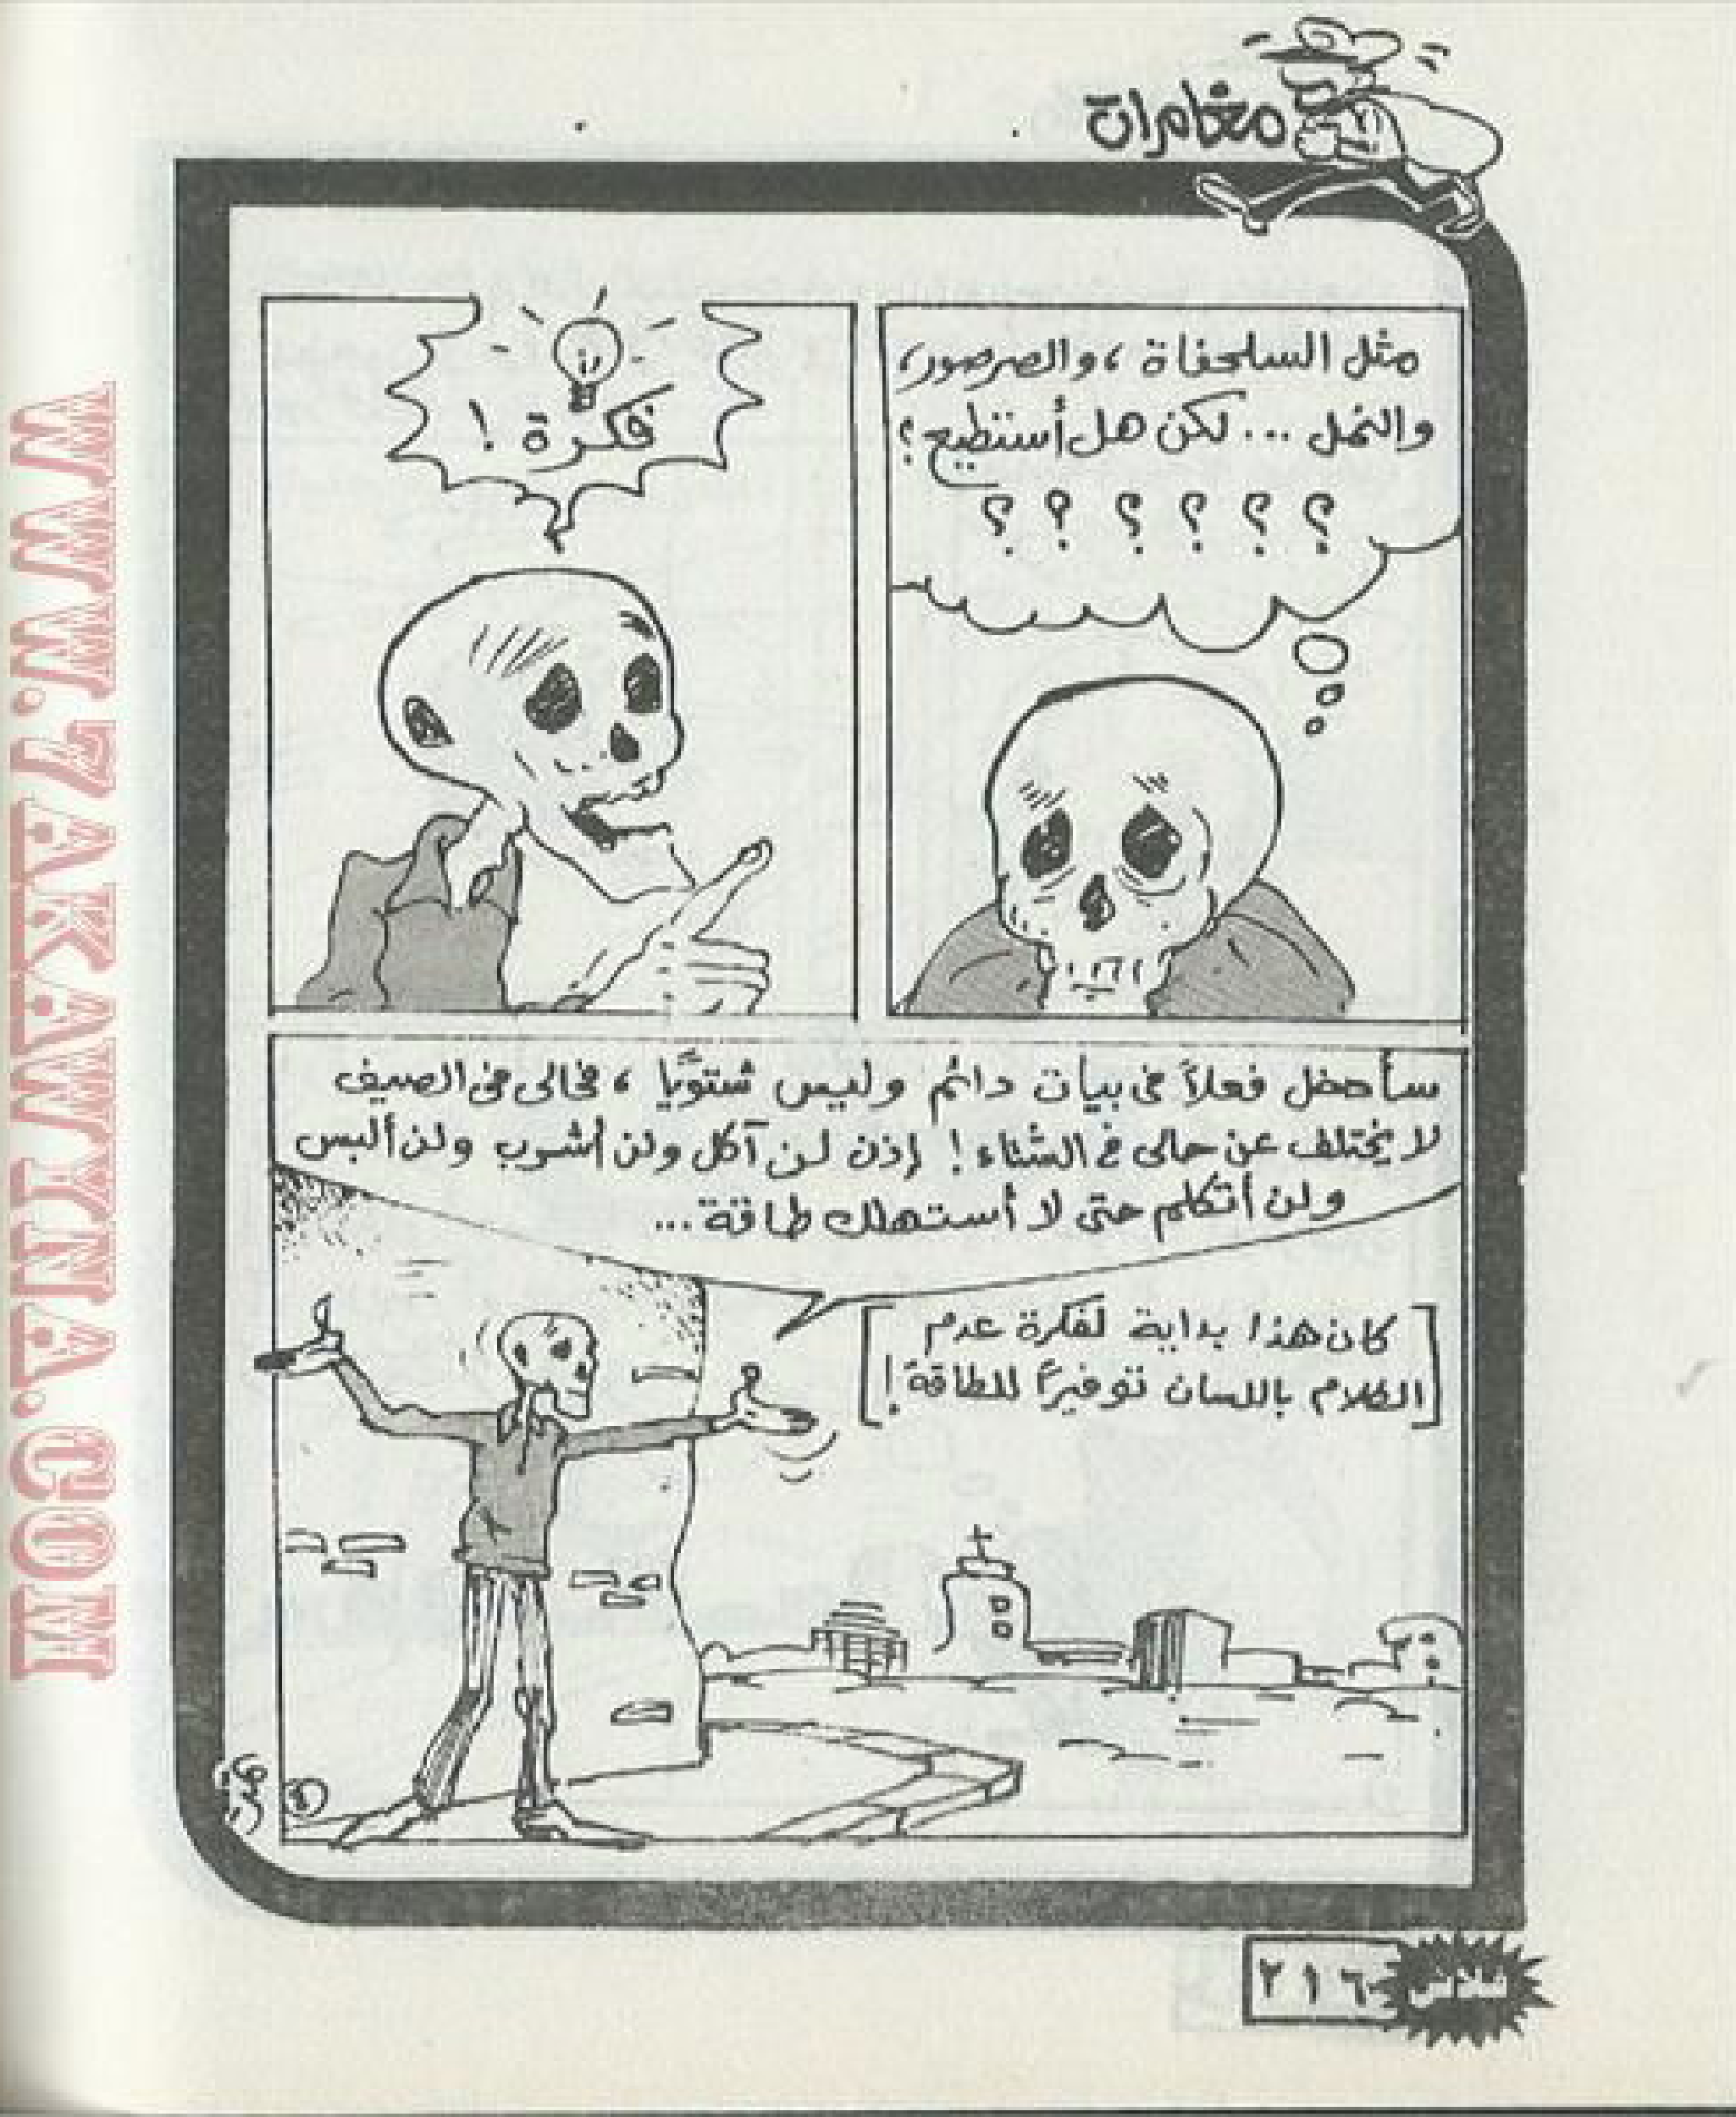 مغامرات
مثل السلحفاة، والصرصور،
والنمل ... لكن هل أستطيع؟
؟ ؟ ؟ ؟ ؟ ؟
فكرة !
سأدخل فعلاً فى بيات دائم وليس شتويًا، فحالى فى الصيف
لا يختلف عن حالى فى الشتاء! إذن لن آكل ولن أشرب ولن ألبس
ولن أتكلم حتى لا أستهلك طاقة ...
[كان هذا بداية لفكرة عدم
الكلام باللسان توفيرًا للطاقة!]
٢١٦
WWW.7AKAWTNA.COM